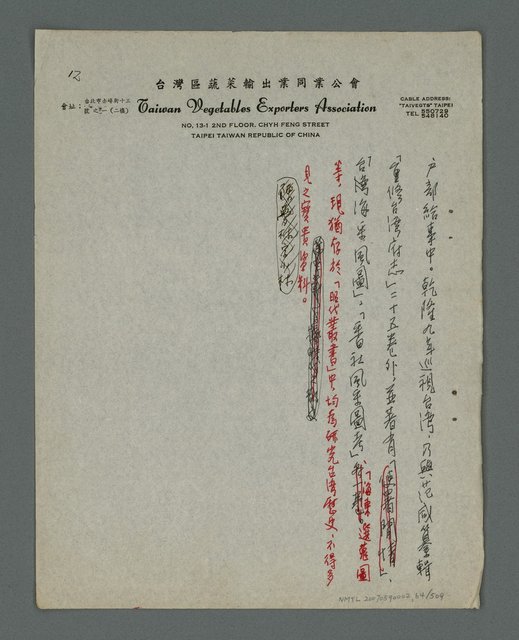 12
台灣區蔬菜輸出業同業公會
會址：台北市赤峰街十三號之一(二樓)
Taiwan Vegetables Exporters Association
CABLE ADDRESS:
"TAIVEGTS" TAIPEI
TEL 550728
548140
NO. 13-1 2ND FLOOR, CHYH FENG STREET
TAIPEI TAIWAN REPUBLIC OF CHINA
戶部給事中。乾隆九年巡視台灣，乃與范咸纂輯
「重修台灣府志」二十五卷外，並著有「使署閒情」、
「台灣海采風圖」、「番社風采圖考」、「海東選蒐圖
等，現猶存於「昭代叢書」中，均為研究台灣歷史不得多
見之寶貴資料。
NMTL 20070590002, 64/509